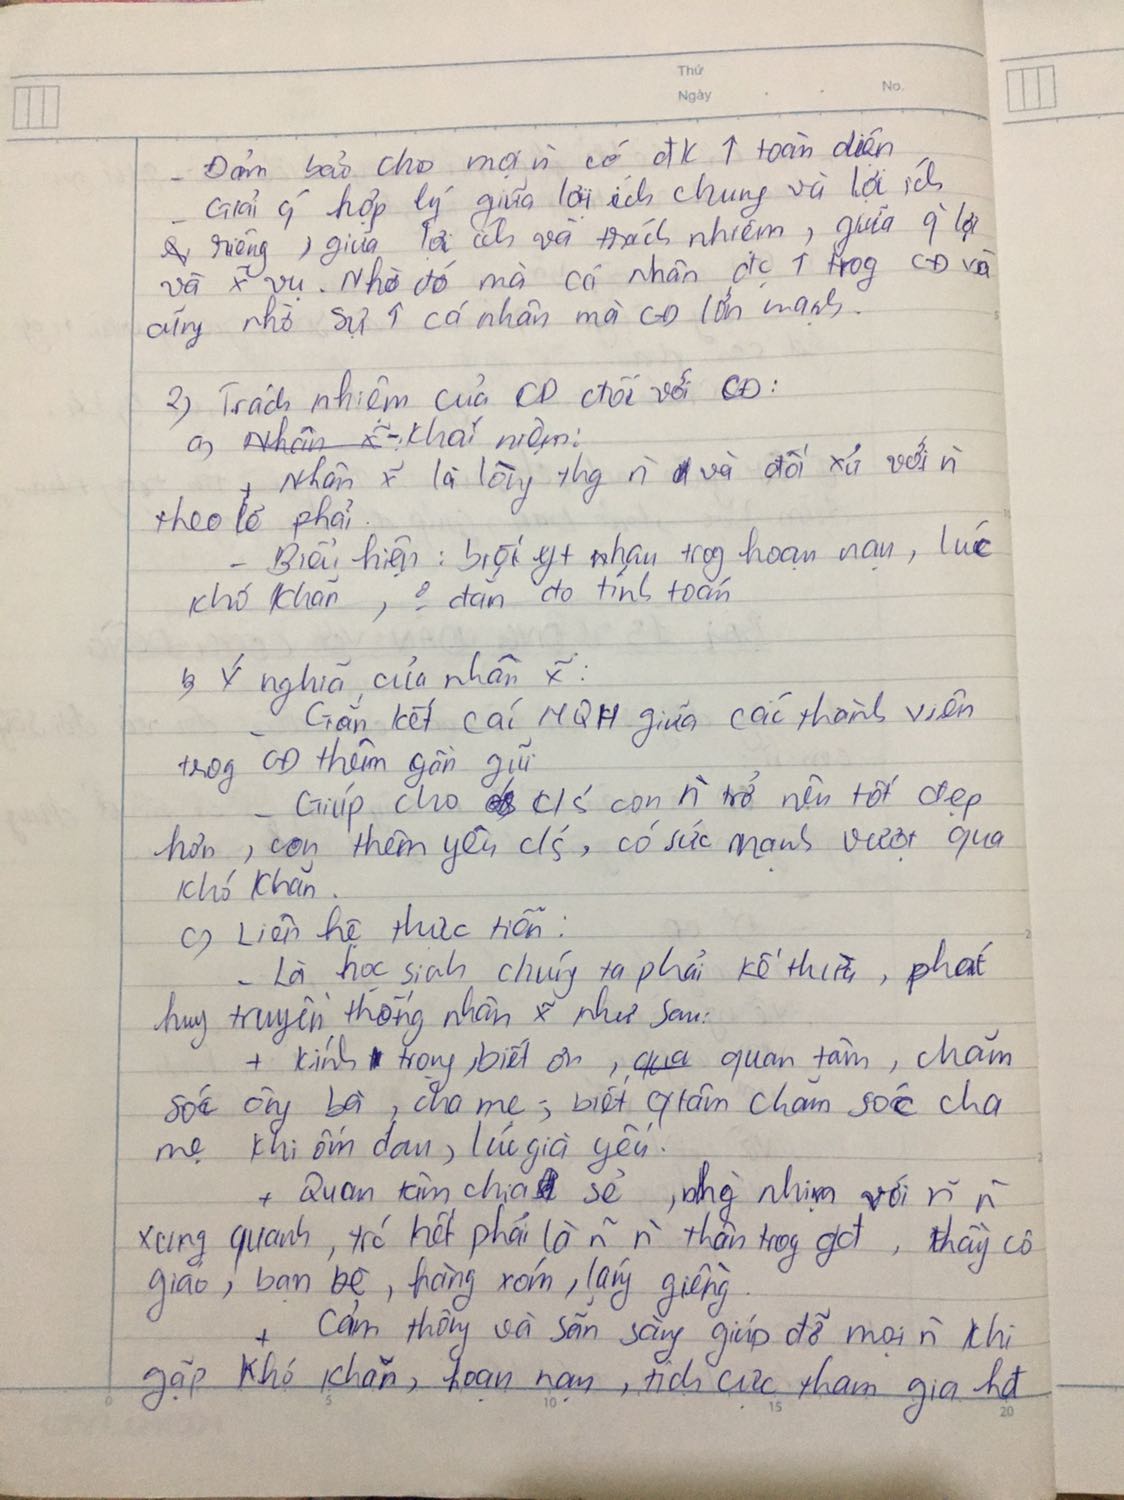 Thứ
Ngày
No.
- Đảm bảo cho mọi ǹ có đk ↑ toàn diện
- Giải q́ hợp lý giữa lợi ích chung và lợi ích
riêng, giữa lợi ích và trách nhiệm, giữa q̀ lợi
và x̃ vụ. Nhờ đó mà cá nhân đc ↑ trog CĐ và
cũng nhờ sự ↑ cá nhân mà CĐ lớn mạnh.
2) Trách nhiệm của CD đối với CĐ:
a) Nhân x̃ - Khái niệm:
+ Nhân x̃ là lòng thg ǹ và đối xử với ǹ
theo lẽ phải.
- Biểu hiện: biết gt nhau trog hoạn nạn, lúc
khó khăn, đắn đo tính toán
b) Ý nghĩa của nhân x̃:
- Gắn kết các MQH giữa các thành viên
trog CĐ thêm gần gũi
- Giúp cho c/s con ǹ trở nên tốt đẹp
hơn, con thêm yêu c/s, có sức mạnh vượt qua
khó khăn.
c) Liên hệ thực tiễn:
- Là học sinh chúng ta phải kế thừa, phát
huy truyền thống nhân x̃ như sau:
+ Kính trọng, biết ơn, qua quan tâm, chăm
sóc ông bà, cha mẹ; biết qtâm chăm sóc cha
mẹ khi ốm đau, lúc già yếu.
+ Quan tâm chia sẻ, nhg̀ nhịn với ñ ǹ
xung quanh, trc hết phải là ñ ǹ thân trog gđ, thầy cô
giáo, bạn bè, hàng xóm, láng giềng.
+ Cảm thông và sẵn sàng giúp đỡ mọi ǹ khi
gặp khó khăn, hoạn nạn, tích cực tham gia hđ
0 5 10 15 20